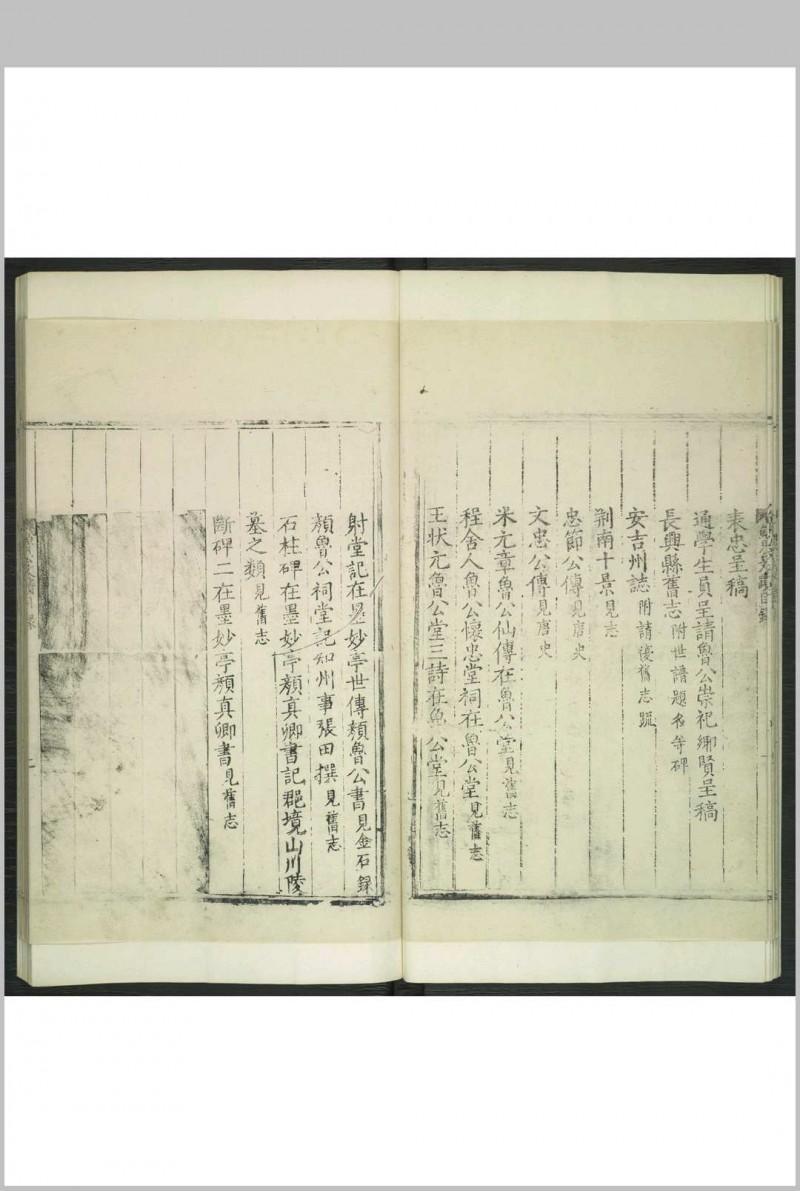 表忠呈稿
通學生員呈請魯公崇祀鄉賢呈稿
長興縣舊志附世譜題名等碑
安吉州誌附請復舊志疏
荆南十景見志
忠節公傳見唐史
文忠公傳見唐史
米元章魯公仙傳在魯公堂見舊志
程舍人魯公懷忠堂祠在魯公堂見舊志
王狀元魯公堂三詩在魯公堂見舊志
射堂記在墨妙亭世傳顏魯公書見金石錄
顏魯公祠堂記知州事張田撰見舊志
石柱碑在墨妙亭顏真卿書記郡境山川陵
墓之類見舊志
斷碑二在墨妙亭顏真卿書見舊志